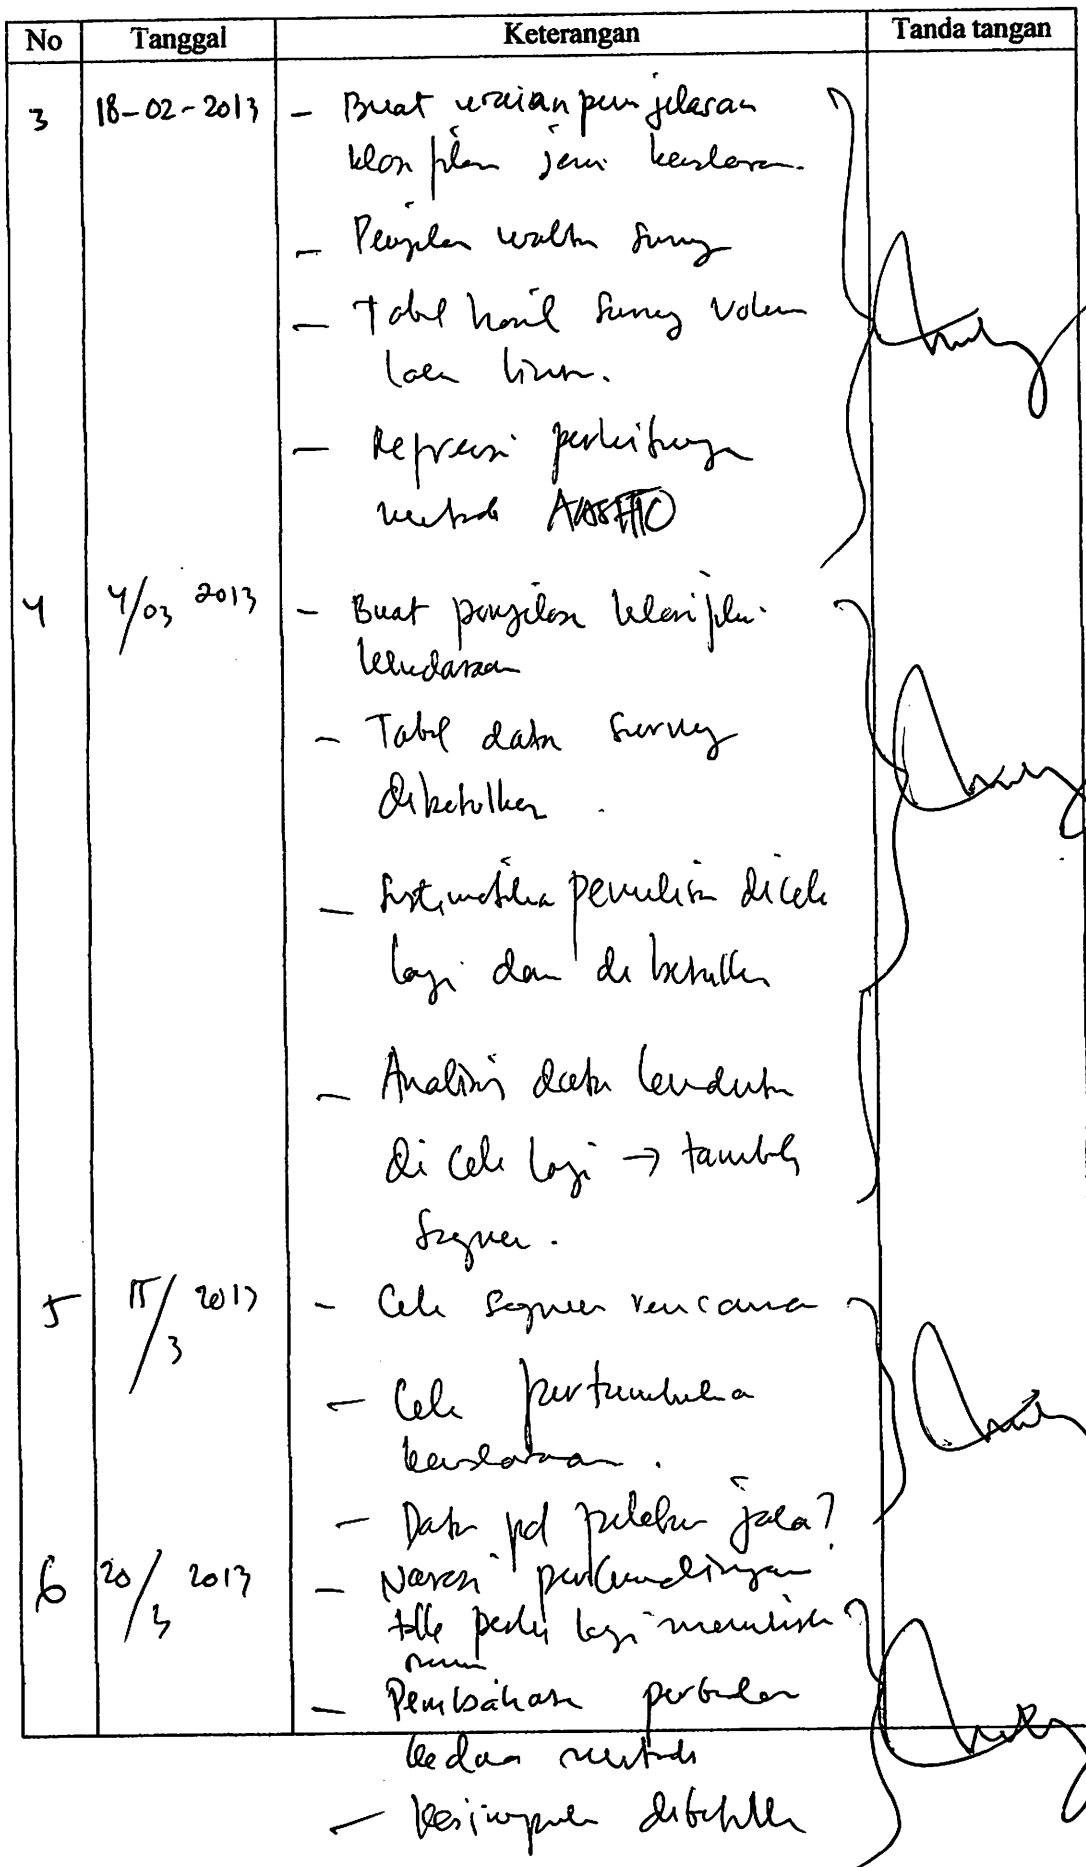 No Tanggal Keterangan Tanda tangan
3 18-02-2013 - Buat uraian penjelasan
jenis kendaraan.
- Penjelasan waktu survey
- Tabel hasil survey volume
lalu lintas.
- Referensi perhitungan
metode AASHTO
4 4/03 2013 - Buat penjelasan klasifikasi
kendaraan
- Tabel data survey
dibetulkan
- Sistimatika penulisan dicek
lagi dan di betulkan
- Analisis data lendutan
di cek lagi → tambah
Segmen.
5 15/3 2013 - Cek segmen rencana
- Cek pertumbuhan
kendaraan.
- Data pd pelebaran jalan?
6 20/3 2013 - Narasi perbandingan
perlu lagi menulis
- Pembahasan
kedua metode
- Kesimpulan dibetulkan